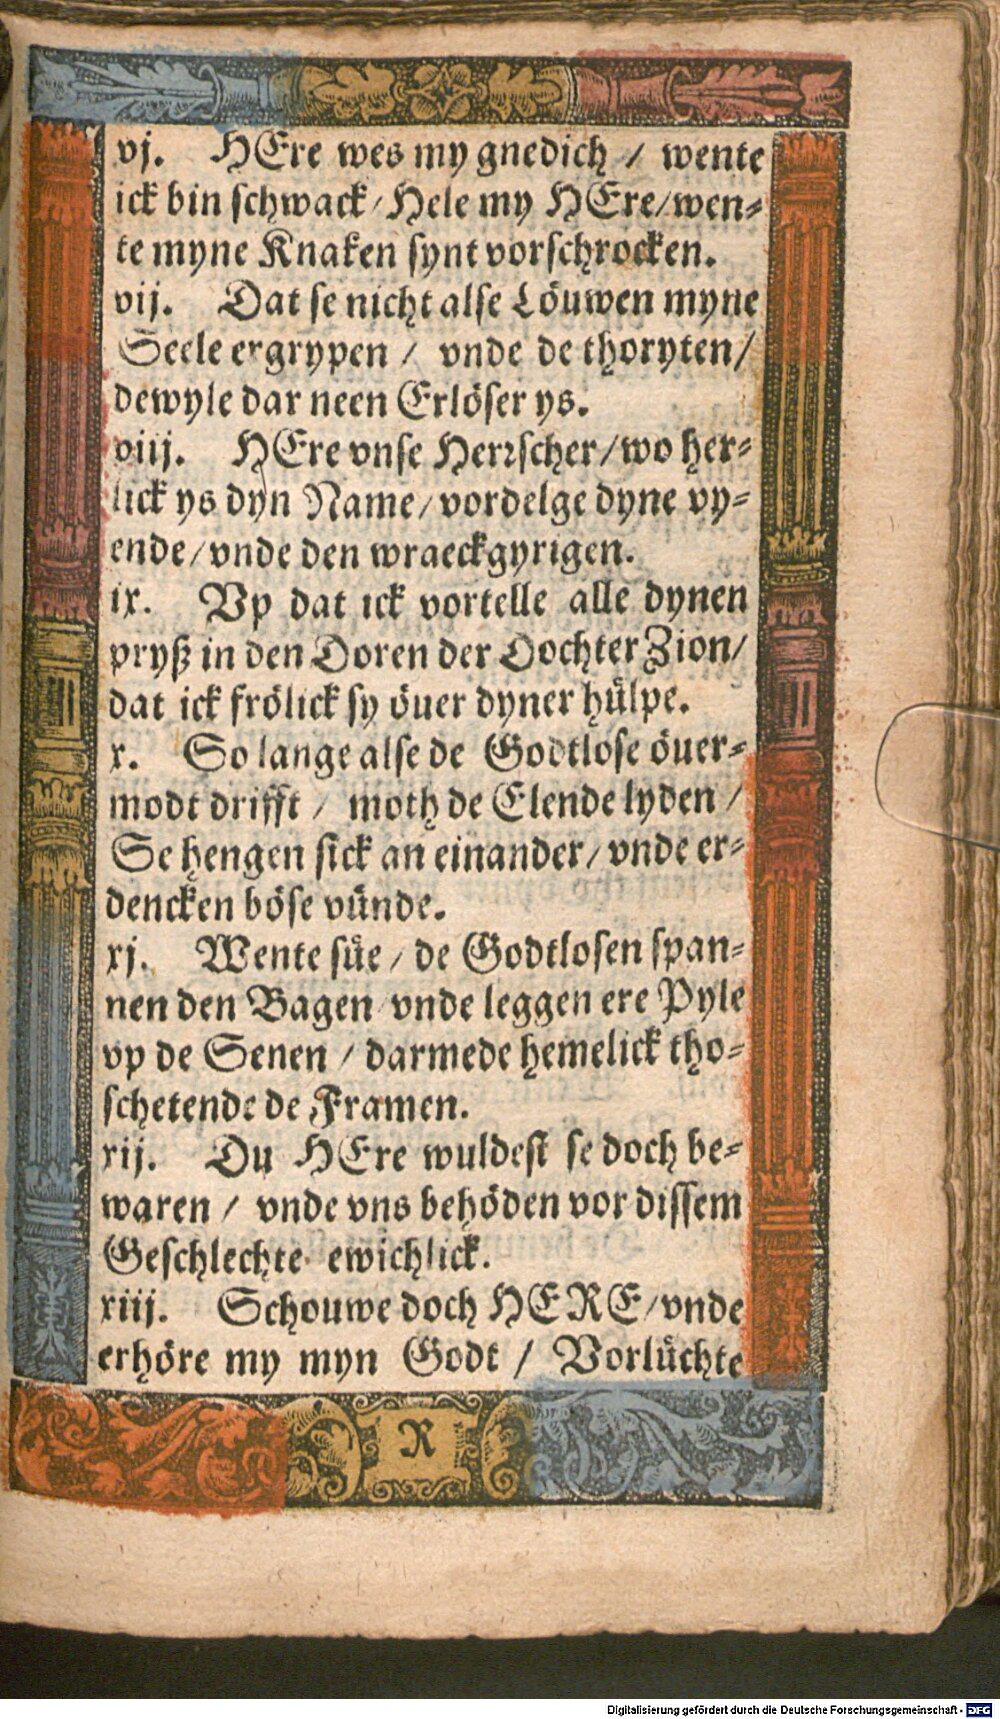 vj. HEre wes my gnedich / wente
ick bin schwack / Hele my HEre / wen⸗
te myne Knaken synt vorschrocken.
vij. Dat se nicht alse Löuwen myne
Seele ergrypen / vnde de thoryten /
dewyle dar neen Erlöser ys.
viij. HEre vnse Herrscher / wo her⸗
lick ys dyn Name / vordelge dyne vy⸗
ende / vnde den wraeckgyrigen.
ix. Vp dat ick vortelle alle dynen
pryß in den Doren der Dochter Zion /
dat ick frölick sy öuer dyner hülpe.
x. So lange alse de Godtlose öuer⸗
modt drifft / moth de Elende lyden /
Se hengen sick an einander / vnde er⸗
dencken böse vünde.
xj. Wente süe / de Godtlosen span⸗
nen den Bagen vnde leggen ere Pyle
vp de Senen / darmede hemelick tho⸗
schetende de Framen.
xij. Du HEre wuldest se doch be⸗
waren / vnde vns behöden vor dissem
Geschlechte ewichlick.
xiij. Schouwe doch HERE / vnde
erhöre my myn Godt / Vorlüchte
R
Digitalisierung gefördert durch die Deutsche Forschungsgemeinschaft - DFG